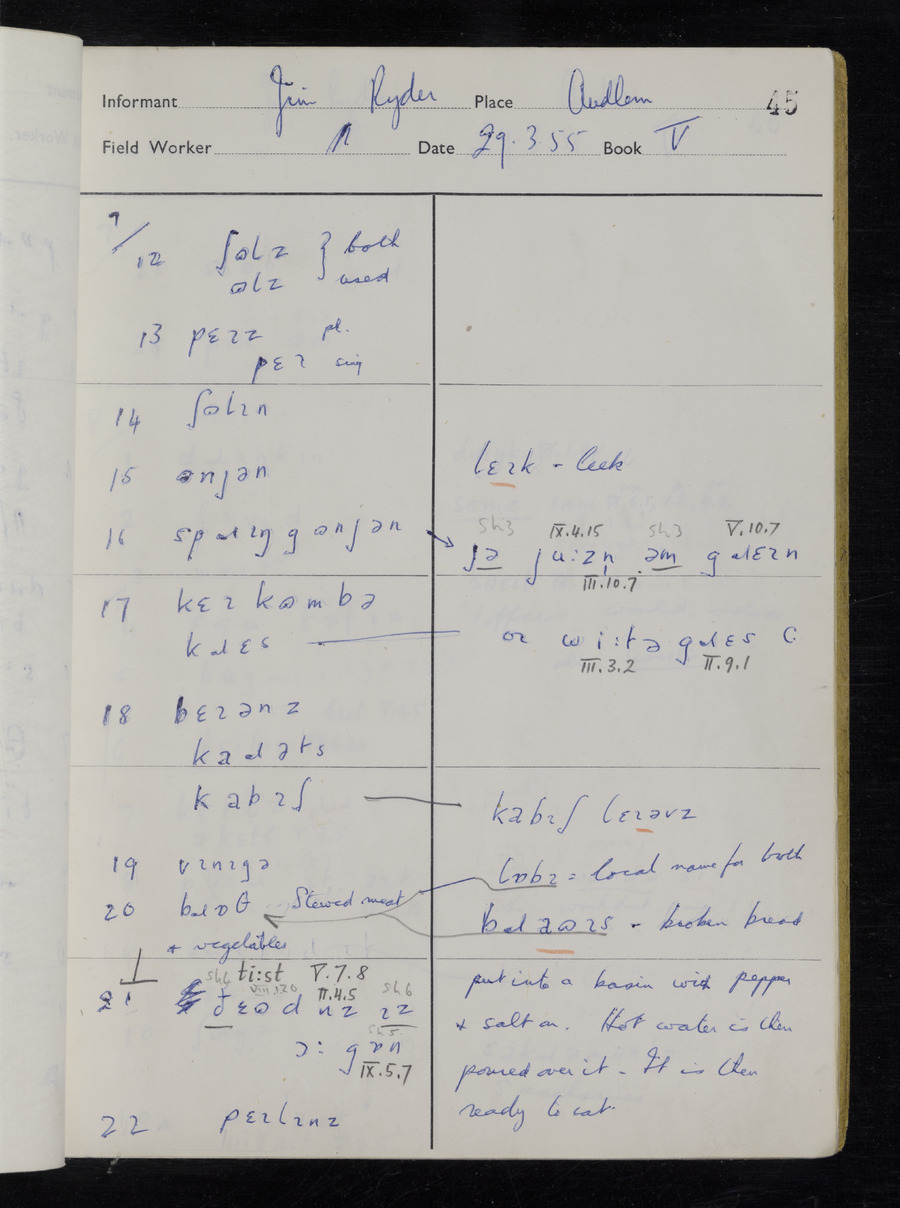 Informant Jim Ryder Place Audlem 45
Field Worker Date 29.3.55 Book V
7/
12 ʃɒlz } both
ɒlz used
13 pɛɪz pl.
pɛɪ sing
14 ʃɒlɪn
15 ɒnjən
lɛɪk - leek
16 spɹɪŋgɒnjən
sh3 IX.4.15 sh3 V.10.7
jə ju:zn̩ əm gɹɛɪn
III.10.7
17 kɛɪkɒmbə
kɹɛs
or wi:tə gɹɛs
III.3.2 II.9.1
18 bɛɪənz
kaɹəts
kabɪʃ
kabɪʃ lɛɪəvz
19 vɪnɪgə
lɒbɪ = local name for both
20 bɹɒθ Stewed meat
+ vegetables
bɹaɒɪs - broken bread
put into a basin with pepper
+ salt on. Hot water is then
poured over it. It is then
ready to eat.
sh6 ti:st V.7.8
VIII.1.20 II.4.5 sh6
21 ðɛəd nz ɪz
sh5
ɔ: gɒn
IX.5.7
22 pɛɪlɪnz